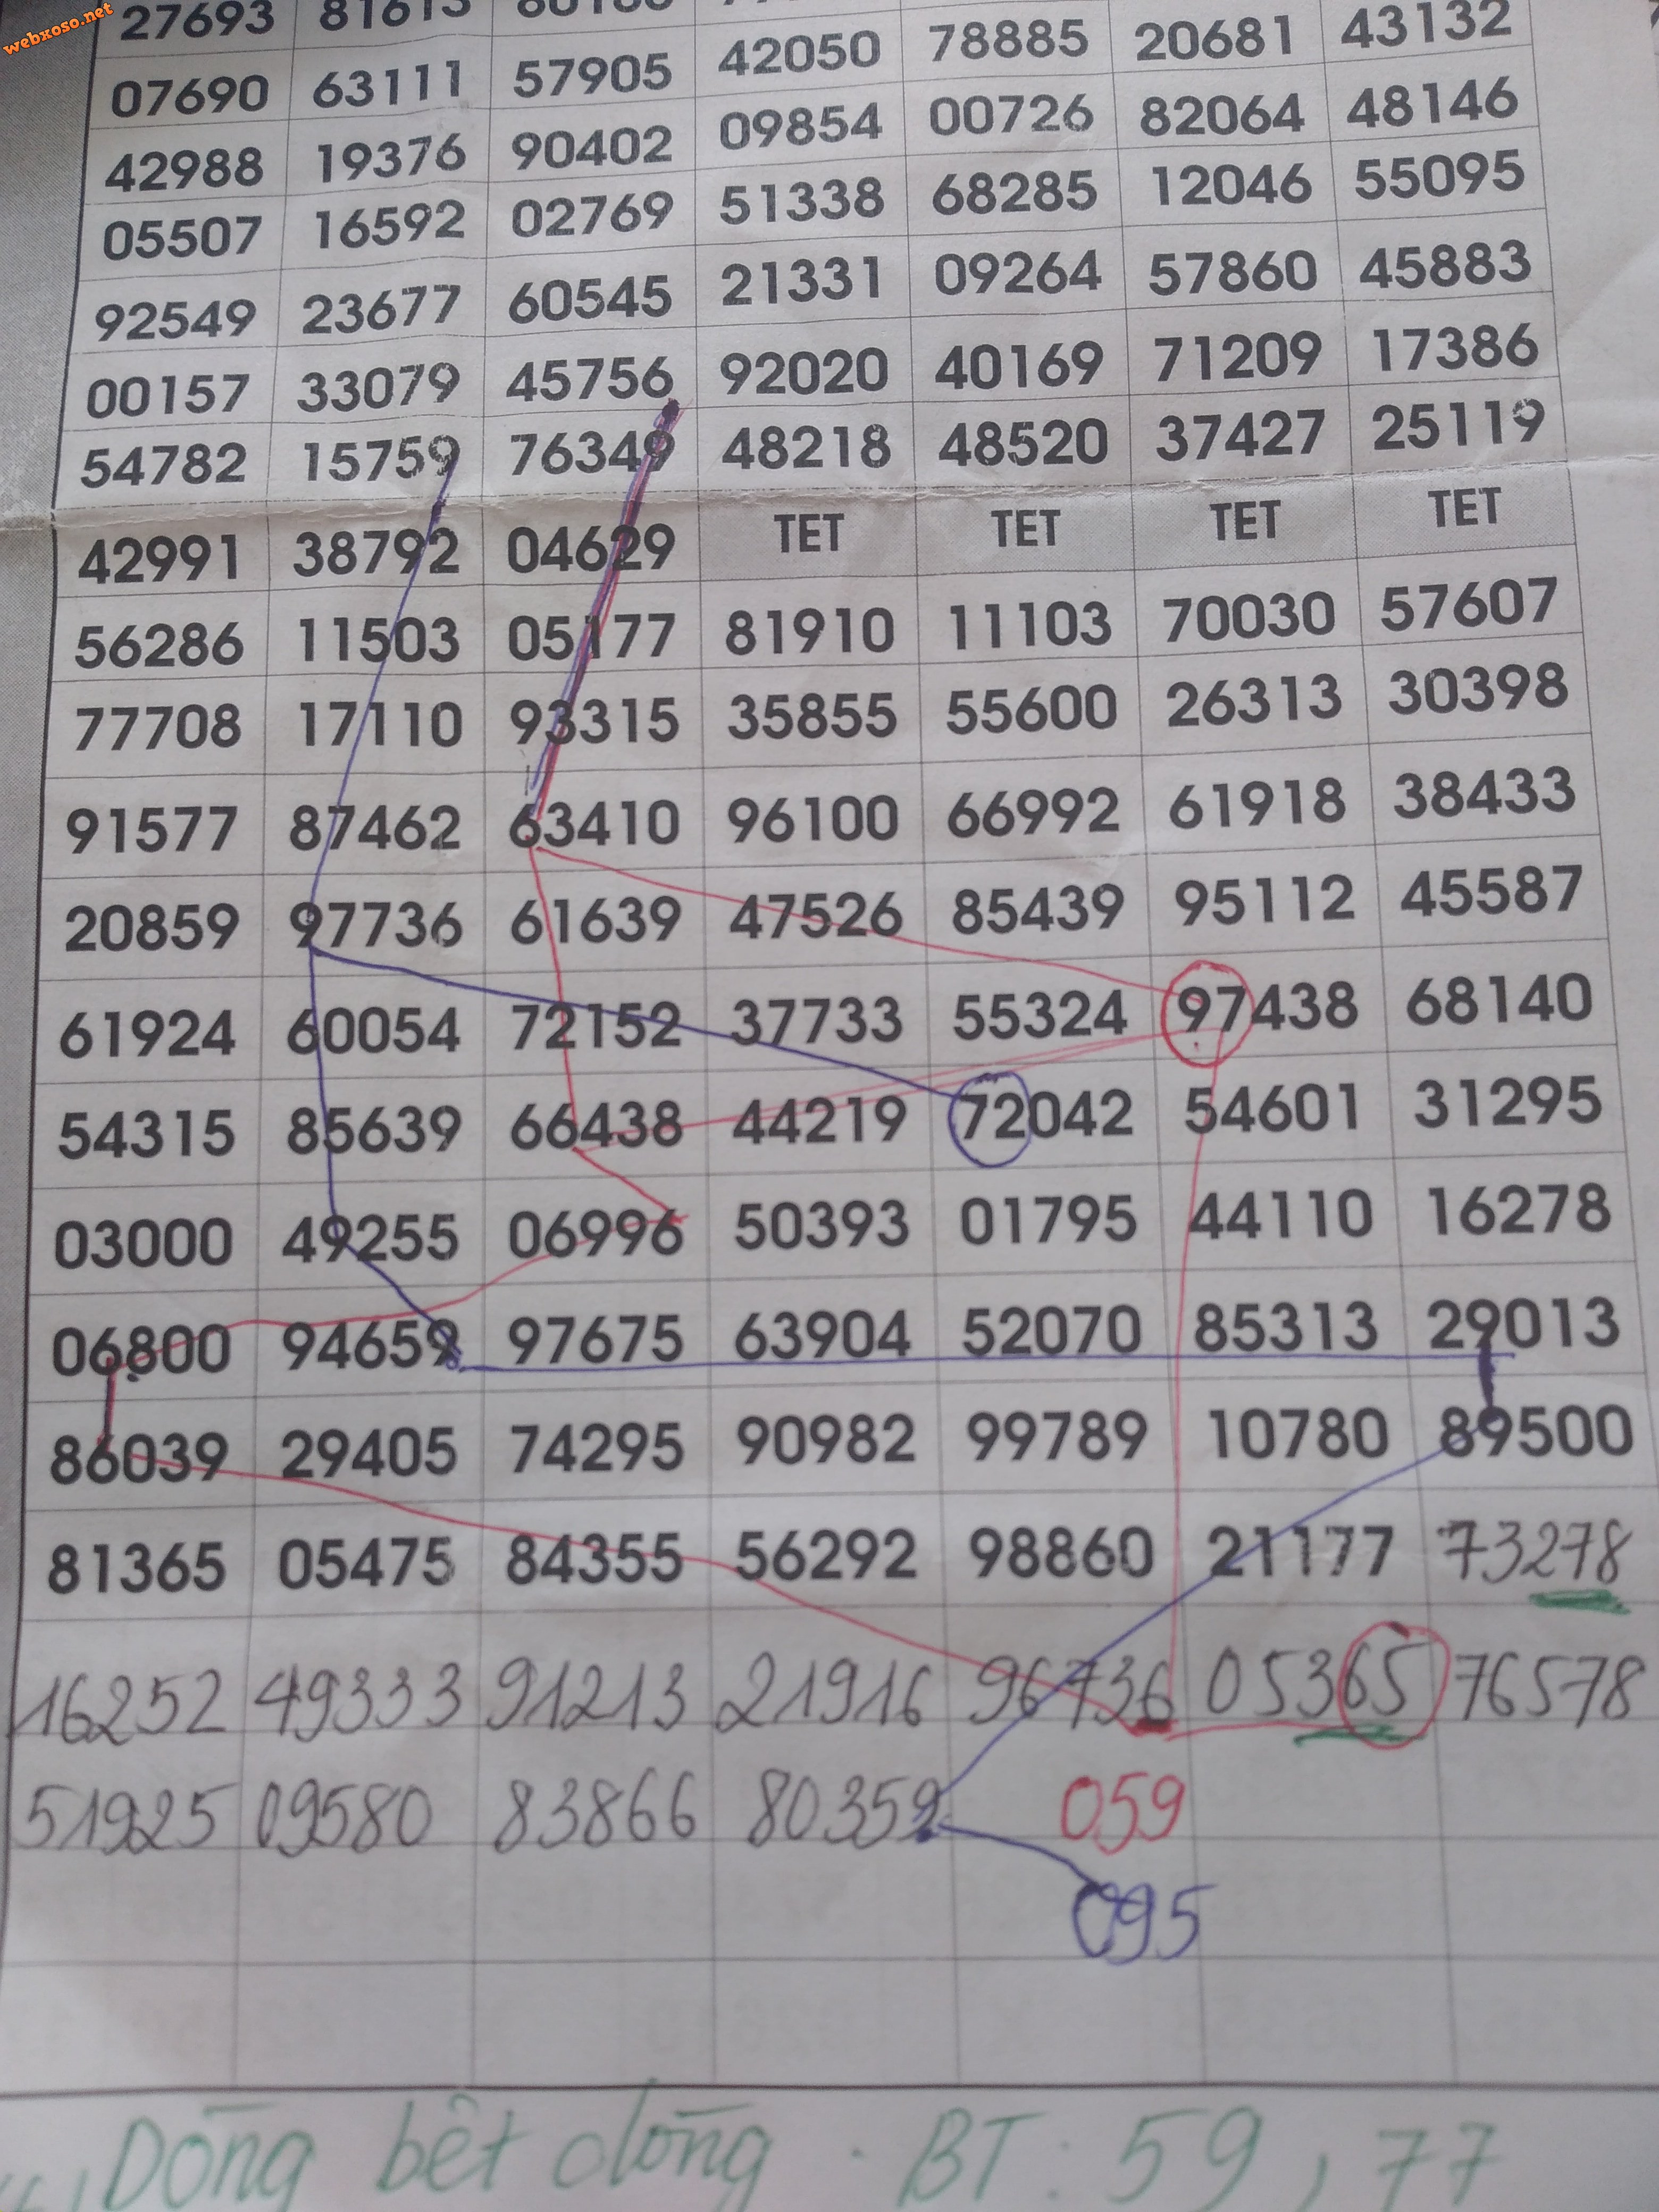 webxoso.net
27693 81613
07690 63111 57905 42050 78885 20681 43132
42988 19376 90402 09854 00726 82064 48146
05507 16592 02769 51338 68285 12046 55095
92549 23677 60545 21331 09264 57860 45883
00157 33079 45756 92020 40169 71209 17386
54782 15759 76349 48218 48520 37427 25119
42991 38792 04629 TET TET TET TET
56286 11503 05177 81910 11103 70030 57607
77708 17110 93315 35855 55600 26313 30398
91577 87462 63410 96100 66992 61918 38433
20859 97736 61639 47526 85439 95112 45587
61924 60054 72152 37733 55324 97438 68140
54315 85639 66438 44219 72042 54601 31295
03000 49255 06996 50393 01795 44110 16278
06800 94659 97675 63904 52070 85313 29013
86039 29405 74295 90982 99789 10780 89500
81365 05475 84355 56292 98860 21177 73278
16252 49333 91213 21916 96736 05365 76578
51925 09580 83866 80359 059
095
Dòng bêt dòng . BT : 59 , 77